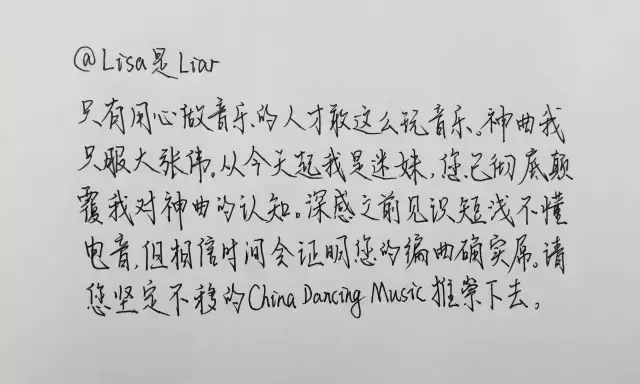 @Lisa是Liar
只有用心做音乐的人才敢这么玩音乐。神曲我
只服大张伟。从今天起我是迷妹，您已彻底颠
覆我对神曲的认知。深感之前见识短浅不懂
电音，但相信时间会证明您的编曲确实屌。请
您坚定不移的China Dancing Music推崇下去。